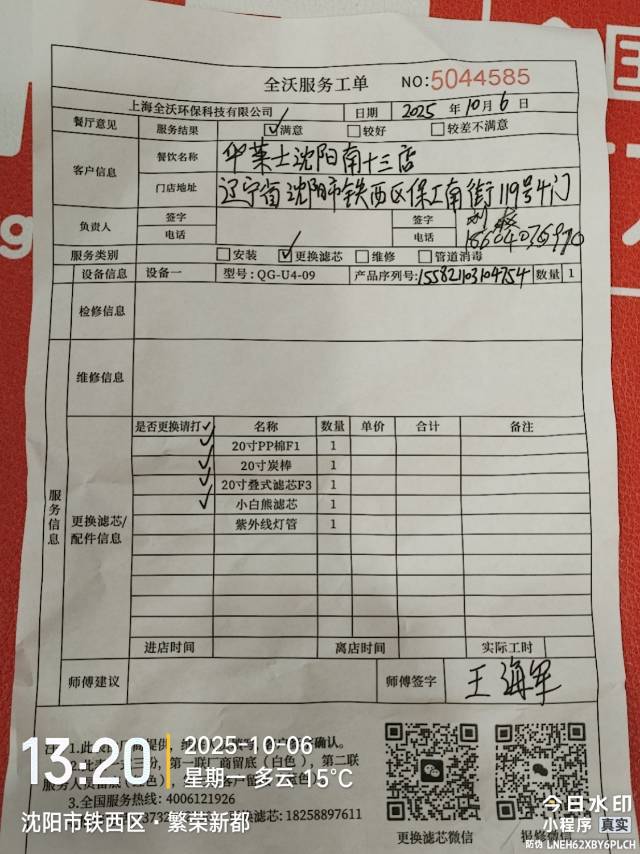 全沃服务工单 NO:5044585
上海全沃环保科技有限公司 日期 2025 年 10 月 6 日
餐厅意见 服务结果 ☑满意 □较好 □较差不满意
客户信息 餐饮名称 华莱士沈阳南十三店
门店地址 辽宁省沈阳市铁西区保工南街119号4门
负责人 签字 签字
电话 电话
服务类别 □安装 ☑更换滤芯 □维修 □管道消毒
设备信息 设备一 型号:QG-U4-09 产品序列号:155821103104754 数量 1
检修信息
维修信息
服务信息
更换滤芯/配件信息
是否更换请打✓ 名称 数量 单价 合计 备注
✓ 20寸PP棉F1 1
✓ 20寸炭棒 1
✓ 20寸叠式滤芯F3 1
✓ 小白熊滤芯 1
紫外线灯管 1
进店时间 离店时间 实际工时
师傅建议 师傅签字 王海军
注:1.此表由厂商提供,
确认。
第一联厂商留底(白色),第二联
3.全国服务热线:4006121926
滤芯:18258897611
更换滤芯微信 报修微信
13:20 2025-10-06
星期一 多云 15°C
沈阳市铁西区·繁荣新都
今日水印
小程序 真实
防伪 LNEH62XBY6PLCH